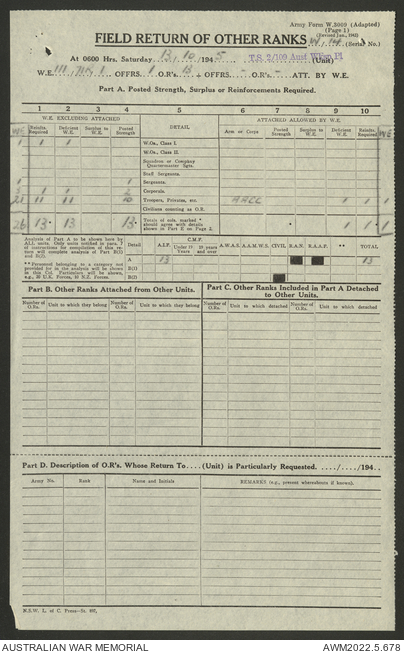 Army Form W.3009 (Adapted)
(Page 1)
(Revised Jan., 1943)
FIELD RETURN OF OTHER RANKS W. 14 (Serial No.)
At 0600 Hrs. Saturday 13.10.1945 T.S. 2/109 Amt W/Sp Pl (Unit)
W.E. III NK 1 OFFRS. 1 O.R's. 13 + OFFRS. - O.R's. - ATT. BY W.E.
Part A. Posted Strength, Surplus or Reinforcements Required.
1 2 3 4 5 6 7 8 9 10
W.E. EXCLUDING ATTACHED DETAIL ATTACHED ALLOWED BY W.E.
WE Reinfts. Required Deficient W.E. Surplus to W.E. Posted Strength Arm or Corps Posted Strength Surplus to W.E. Deficient W.E. Reinfts. Required WE
1 1 1 W.Os., Class I.
W.Os., Class II.
Squadron or Company Quartermaster Sgts.
Staff Sergeants.
1 1 Sergeants.
Corporals.
11 11 10 Troopers, Privates, etc. AACC 1 1
Civilians counting as O.R.
26 13 13 13 Totals of cols. marked * should agree with details shown in Part E on Page 2. 1
Analysis of Part A to be shown here by ALL units. Only units notified in para. 7 of instructions for compilation of this return will complete analysis of Part B(1) and B(2).
** Personnel belonging to a category not provided for in the analysis will be shown in this Col. Particulars will be shown, e.g., 20 U.S. Forces, 10 N.Z. Forces.
Detail A.I.F. C.M.F. Under 19 Years 19 years and over A.W.A.S. A.A.M.W.S. CIVIL R.A.N. R.A.A.F. ** TOTAL
A 13 13
B(1)
B(2)
Part B. Other Ranks Attached from Other Units.
Part C. Other Ranks Included in Part A Detached to Other Units.
Number of O.Rs. Unit to which they belong Number of O.Rs. Unit to which they belong Number of O.Rs. Unit to which detached Number of O.Rs. Unit to which detached
Part D. Description of O.R's. Whose Return To....(Unit) is Particularly Requested. ..../..../194..
Army No. Rank Name and Initials REMARKS (e.g., present whereabouts if known).
N.S.W. L. of C. Press—St.
AUSTRALIAN WAR MEMORIAL AWM2022.5.678